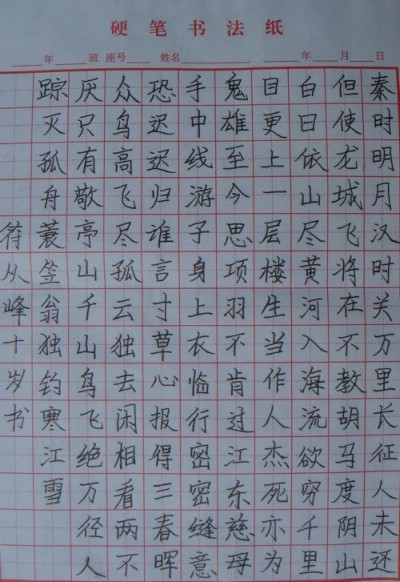 硬笔书法纸
年 班 座号 姓名 年 月 日
秦时明月汉时关万里长征人未还
但使龙城飞将在不教胡马度阴山
白日依山尽黄河入海流欲穷千里
目更上一层楼生当作人杰死亦为
鬼雄至今思项羽不肯过江东慈母
手中线游子身上衣临行密密缝意
恐迟迟归谁言寸草心报得三春晖
众鸟高飞尽孤云独去闲相看两不
厌只有敬亭山千山鸟飞绝万径人
踪灭孤舟蓑笠翁独钓寒江雪
符从峰十岁书